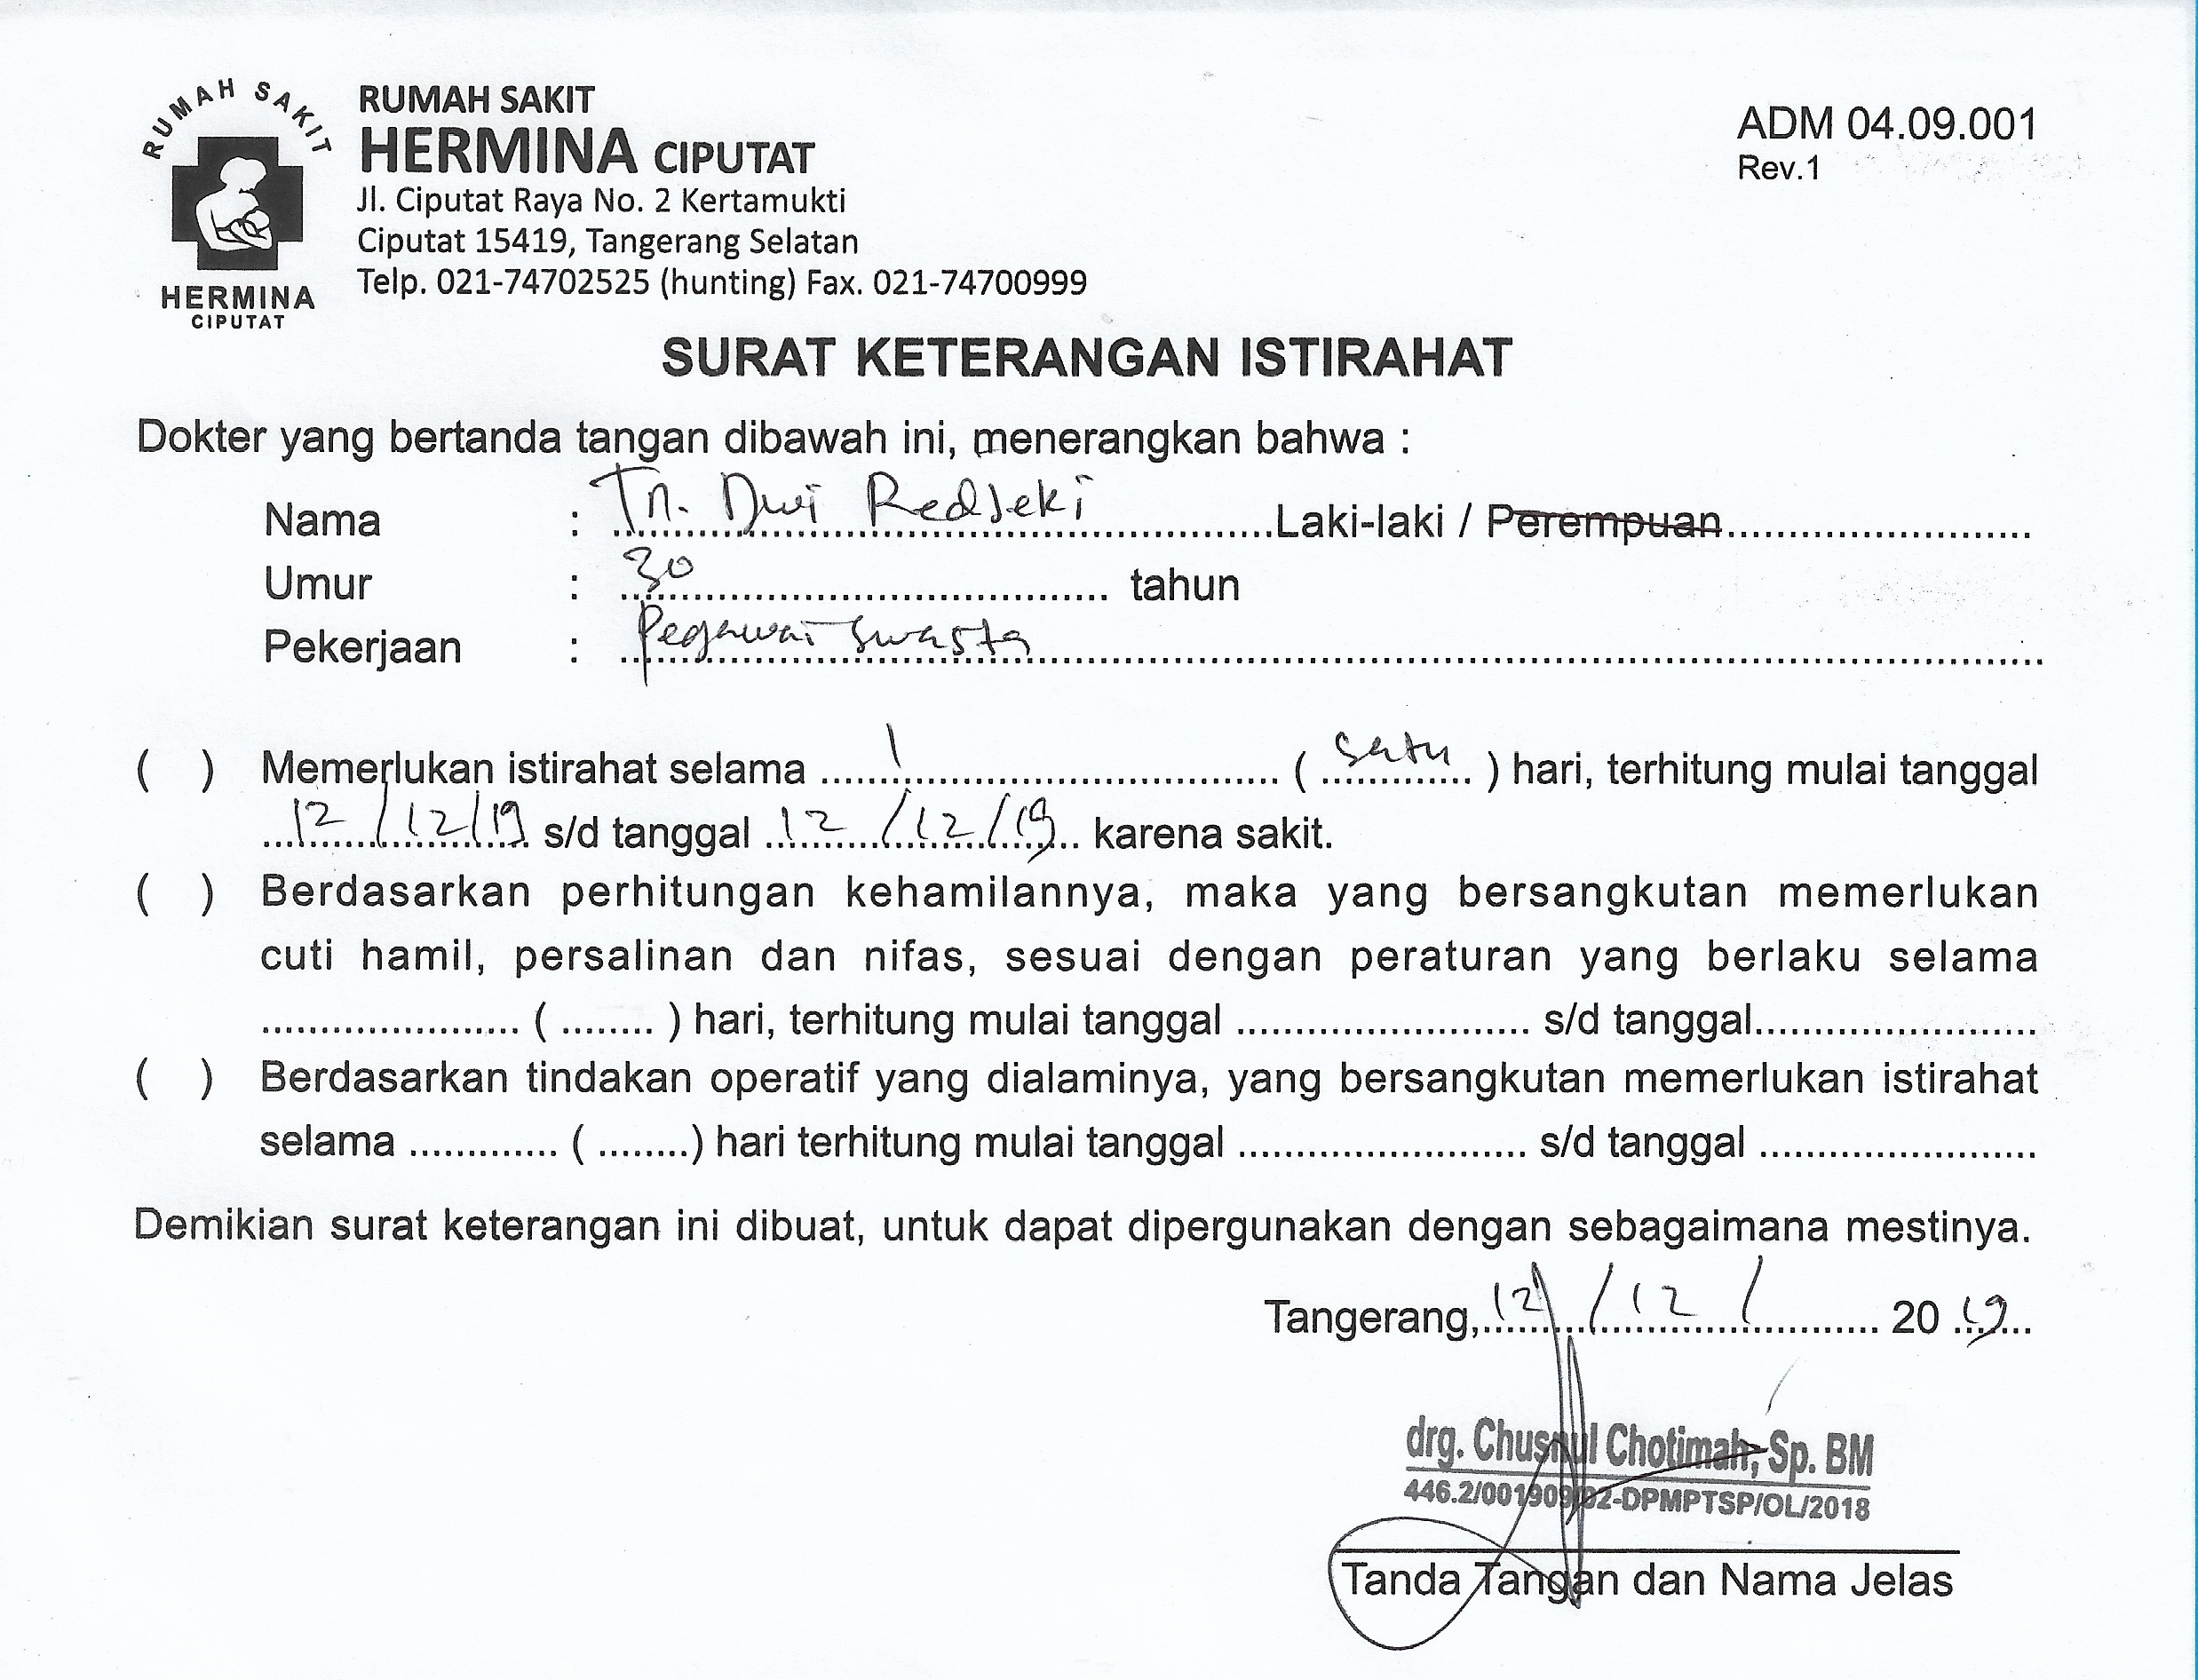 RUMAH SAKIT
HERMINA
CIPUTAT
RUMAH SAKIT
HERMINA CIPUTAT
Jl. Ciputat Raya No. 2 Kertamukti
Ciputat 15419, Tangerang Selatan
Telp. 021-74702525 (hunting) Fax. 021-74700999
ADM 04.09.001
Rev.1
SURAT KETERANGAN ISTIRAHAT
Dokter yang bertanda tangan dibawah ini, menerangkan bahwa :
Nama : Tn. Dwi Redjeki Laki-laki / Perempuan
Umur : 30 tahun
Pekerjaan : Pegawai Swasta
( ) Memerlukan istirahat selama 1 ( satu ) hari, terhitung mulai tanggal
12/12/19 s/d tanggal 12/12/19 karena sakit.
( ) Berdasarkan perhitungan kehamilannya, maka yang bersangkutan memerlukan
cuti hamil, persalinan dan nifas, sesuai dengan peraturan yang berlaku selama
...................... ( ........ ) hari, terhitung mulai tanggal ......................... s/d tanggal........................
( ) Berdasarkan tindakan operatif yang dialaminya, yang bersangkutan memerlukan istirahat
selama ............. ( ........) hari terhitung mulai tanggal ......................... s/d tanggal ........................
Demikian surat keterangan ini dibuat, untuk dapat dipergunakan dengan sebagaimana mestinya.
Tangerang, 12/12/ 2019
drg. Chusnul Chotimah, Sp. BM
446.2/001909/02-DPMPTSP/OL/2018
Tanda Tangan dan Nama Jelas